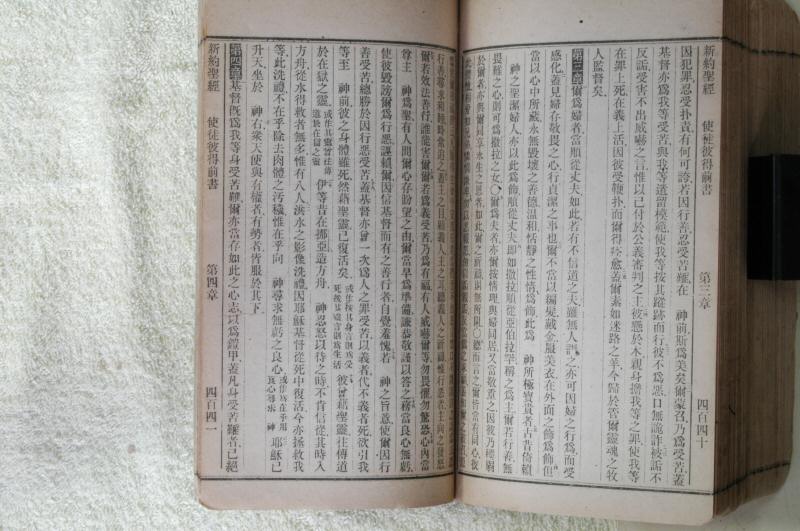 新約聖經 使徒彼得前書 第三章 四百四十
因犯罪忍受扑責有何可誇若因行善忍受苦難在 神前斯爲美矣爾蒙召乃爲受苦蓋
基督亦爲我等受苦與我等遺留模範使我等按其蹤跡而行彼不爲惡口無詭詐被詬不
反詬受害不出威嚇之言惟以己付於公義審判之主彼懸於木親身擔我等之罪使我等
在罪上死在義上活因彼受鞭扑而爾得痊愈蓋爾素如迷路之羊今歸於管爾靈魂之牧
人監督矣
第三章爾爲婦者當順從丈夫如此若有不信道之夫雖無人以道訓之亦可因婦之行爲而受
感化蓋見婦存敬畏之心行貞潔之事也爾不當以編髮戴金服美衣在外面之飾爲飾但
當以心中所藏永無毀壞之善德溫和恬靜之性情爲飾此爲 神所極寶貴者古昔倚賴
神之聖潔婦人亦以此爲飾順從丈夫卽如撒拉順從亞伯拉罕稱之爲主爾若行善無
畏難之心則可爲撒拉之女〇爾爲夫者亦當按情理與婦同居又當敬重之因彼乃
於爾者亦與爾同享永生之恩者如此爾之祈禱則無所阻總而言之爾皆當有同心彼
行善尋求和睦時常追之蓋主之目顧義人主之耳聽義人之祈禱惟行惡者主向之發怒
爾若效法善行誰能害爾爾若爲義受苦乃爲有福有人威嚇爾等勿畏懼勿驚恐心內當
尊主 神爲聖有人問爾心存盼望之由爾當早爲準備謙恭敬謹以答之務當良心無虧
使彼毀謗爾爲行惡誣賴爾因信基督而有之善行者自覺羞愧若 神之旨意使爾因行
善受苦總勝於因行惡受苦基督亦曾一次爲人之罪受苦以義者代不義者死欲引我
等至 神前彼之身體雖死然藉聖靈已復活矣 彼曾藉聖靈往傳道
於在獄之靈 伊等昔在挪亞造方舟 神忍怒以待之時不肯信從其時入
方舟從水得救者無多惟有八人洪水之影像洗禮因耶穌基督從死中復活今亦拯救我
等此洗禮不在乎除去肉體之污穢惟在乎向 神尋求無虧之良心 耶穌已
升天坐於 神右衆天使與有權者有勢者皆服於其下
第四章基督旣爲我等身受苦難爾亦當存如此之心志以爲鎧甲蓋凡身受苦難者已絕
新約聖經 使徒彼得前書 第四章 四百四一